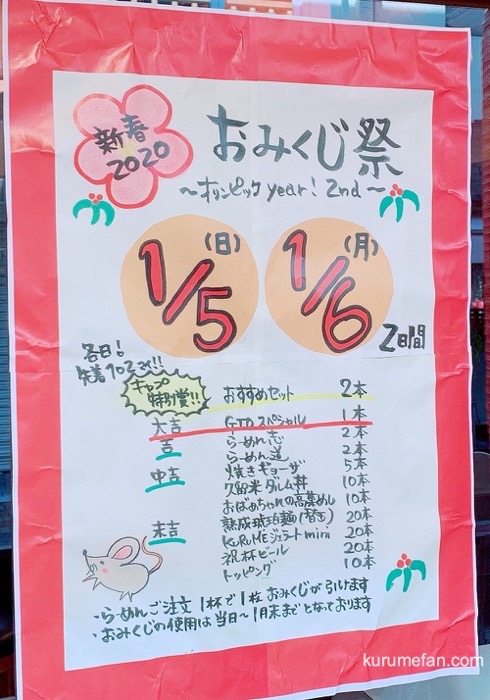 新春
2020
おみくじ祭
〜オリンピックyear! 2nd〜
1/5(日)
1/6(月)
2日間
各日!
先着
キャプ
特別賞!! おすすめセット 2本
大吉 GTOスペシャル 1本
吉 らーめん志 2本
らーめん道 2本
中吉 焼きギョーザ 5本
久留米タルム丼 10本
おばあちゃんの高菜めし 10本
熟成琥珀麺(替玉) 20本
末吉 KuRuMEジェラートmini 20本
祝杯ビール 20本
トッピング 10本
・らーめんご注文1杯で1枚おみくじが引けます
・おみくじの使用は当日〜1月末までとなっております
kurumefan.com